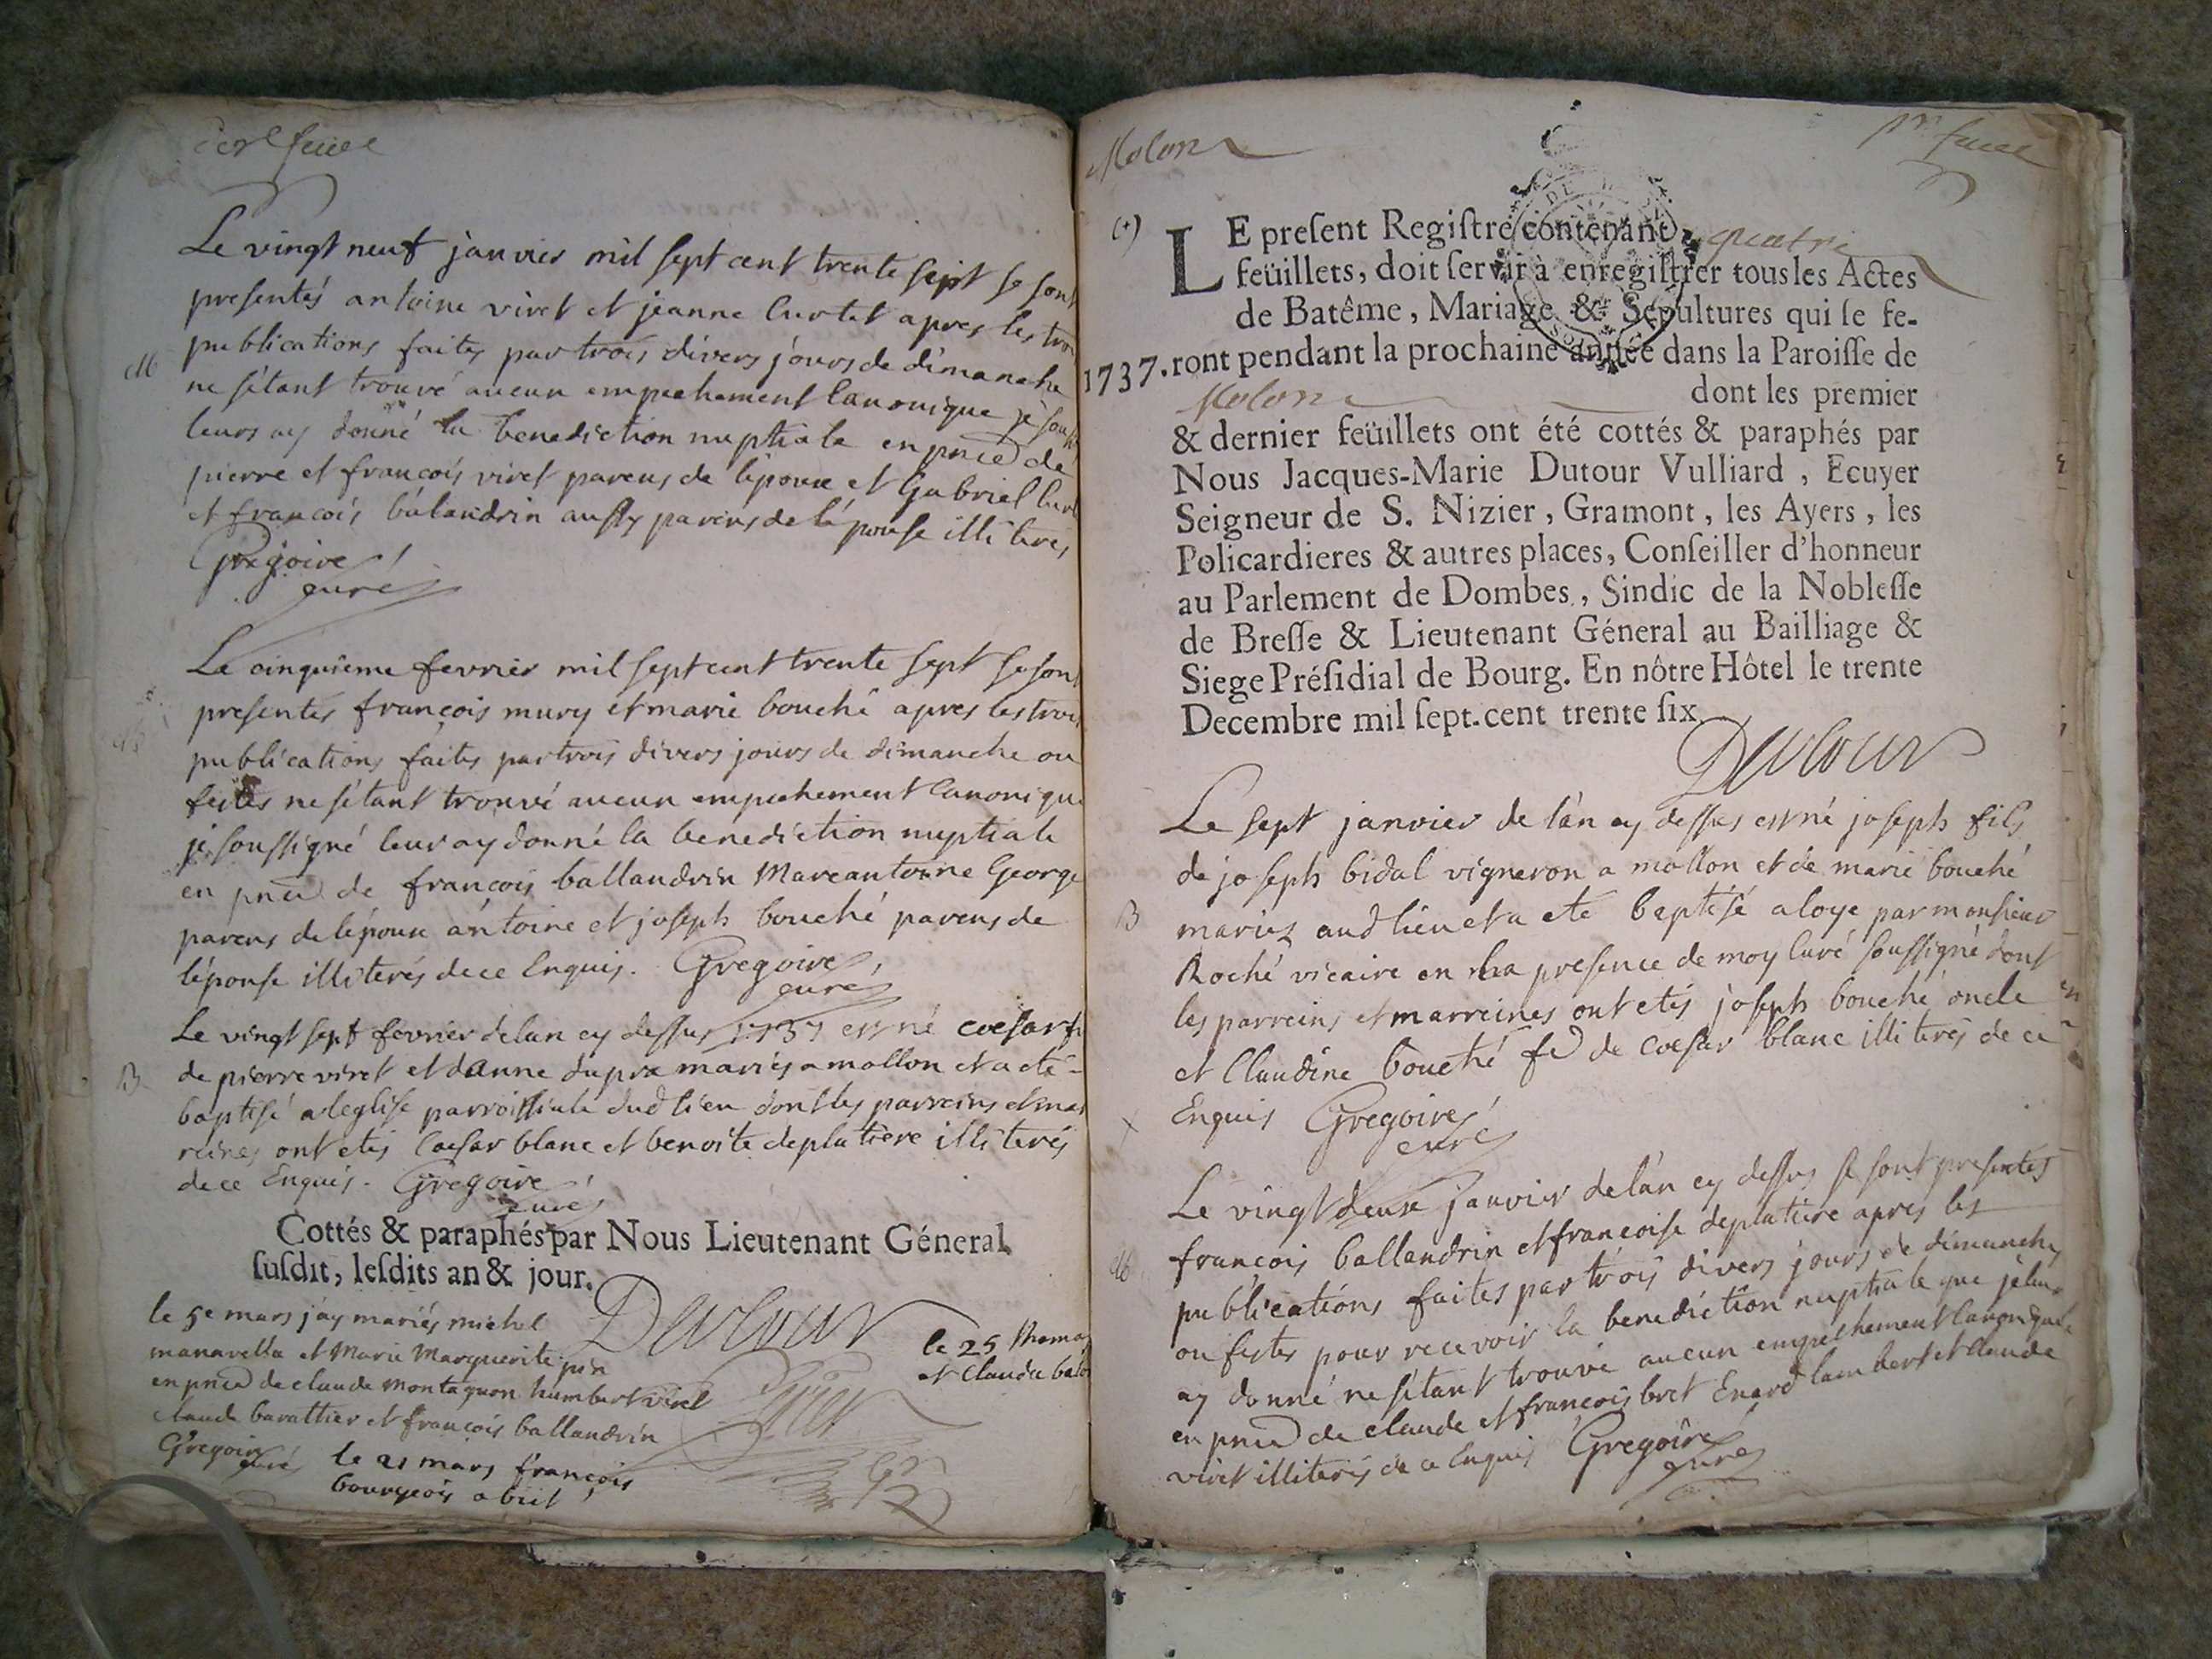 Le vingt neuf janvier mil sept cent trente sept se sont
presentés antoine viret et jeanne Curtet apres les tro
publications faites par trois divers jours de dimanche
M
ne sétant trouvé aucun empechement Canonique je sous
leurs ay donné la benediction nuptiale en pnce de
pierre et francois viret parens de lépoux et Gabriel Curt
et francois balandrin aussy parens de lépouse illiterés
Gregoire
curé
Le cinquieme fevrier mil sept cent trente sept se sont
presentés francois mury et marie bouché apres les trois
publications faites par trois divers jours de dimanche ou
festes ne sétant trouvé aucun empechement Canonique
je soussigné leur ay donné la benediction nuptiale
en pnce de francois ballandrin Marcantoine George
parens de lépoux antoine et joseph bouché parens de
lépouse illiterés de ce Enquis. Gregoire
curé
Le vingt sept fevrier de lan cy dessus 1737 est né coesar fi
B
de pierre viret et danne dupra mariés a mollon et a eté
baptisé a leglise parroissiale dud lieu dont les parreins et mar
reines ont etés Coesar blanc et benoite deplatiere illiterés
de ce Enquis. Gregoire
curé
Cottés & paraphés par Nous Lieutenant Géneral
susdit, lesdits an & jour.
Dutour
le 5e mars j'ay mariés michel
manavella et Marie Marguerite
en pnce de claude montagnon humbert viret
claude barattier et francois ballandrin
Gregoire
curé
le 21 mars francois
bourgeois
le 25
et Claudee
Molon
pr feuil
(+)
LE present Registre contenant quatre
feüillets, doit servir à enregistrer tous les Actes
de Batême, Mariage & Sepultures qui se fe-
1737. ront pendant la prochaine année dans la Paroisse de
Molon dont les premier
& dernier feüillets ont été cottés & paraphés par
Nous Jacques-Marie Dutour Vulliard, Ecuyer
Seigneur de S. Nizier, Gramont, les Ayers, les
Policardieres & autres places, Conseiller d'honneur
au Parlement de Dombes, Sindic de la Noblesse
de Bresse & Lieutenant Géneral au Bailliage &
Siege Présidial de Bourg. En nôtre Hôtel le trente
Decembre mil sept-cent trente six
Dutour
Le sept janvier de lan cy dessus est né joseph fils
de joseph bidal vigneron a mollon et de marie bouché
B
mariez aud lieu et a eté baptisé a loye par monsieur
Roché vicaire en la presence de moy Curé soussigné dont
les parreins et marreines ont etés joseph bouché oncle
et Claudine bouché fe de coesar blanc illiterés de ce
Enquis Gregoire
curé
Le vingt deux janvier de lan cy dessus se sont presentés
francois ballandrin et francoise deplatiere apres les
M
publications faites par trois divers jours de dimanches
ou festes pour recevoir la benediction nuptiale que je leur
ay donné ne sétant trouvé aucun empechement Canonique
en pnce de claude et francois bret Enard lambert et claude
viret illiterés de ce Enquis Gregoire
curé